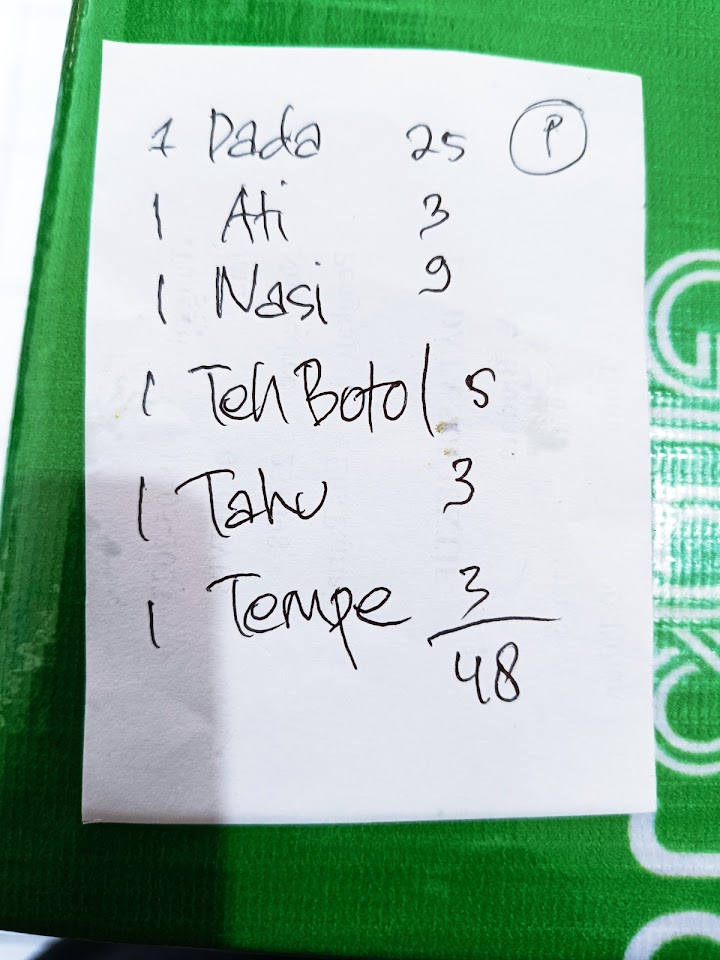 1 Dada 25 P
1 Ati 3
1 Nasi 9
1 Teh Botol 5
1 Tahu 3
1 Tempe 3
48